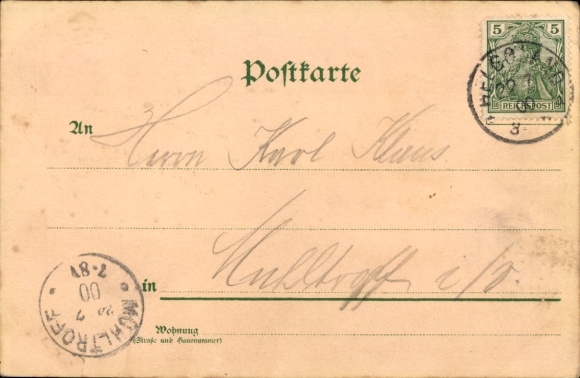 5 5
REICHSPOST
HELGOLAND
3-
Postkarte
An Herrn Karl Klaus
in Mühltroff i/V.
Wohnung
(Straße und Hausnummer)
MÜHLTROFF
7-8V
00